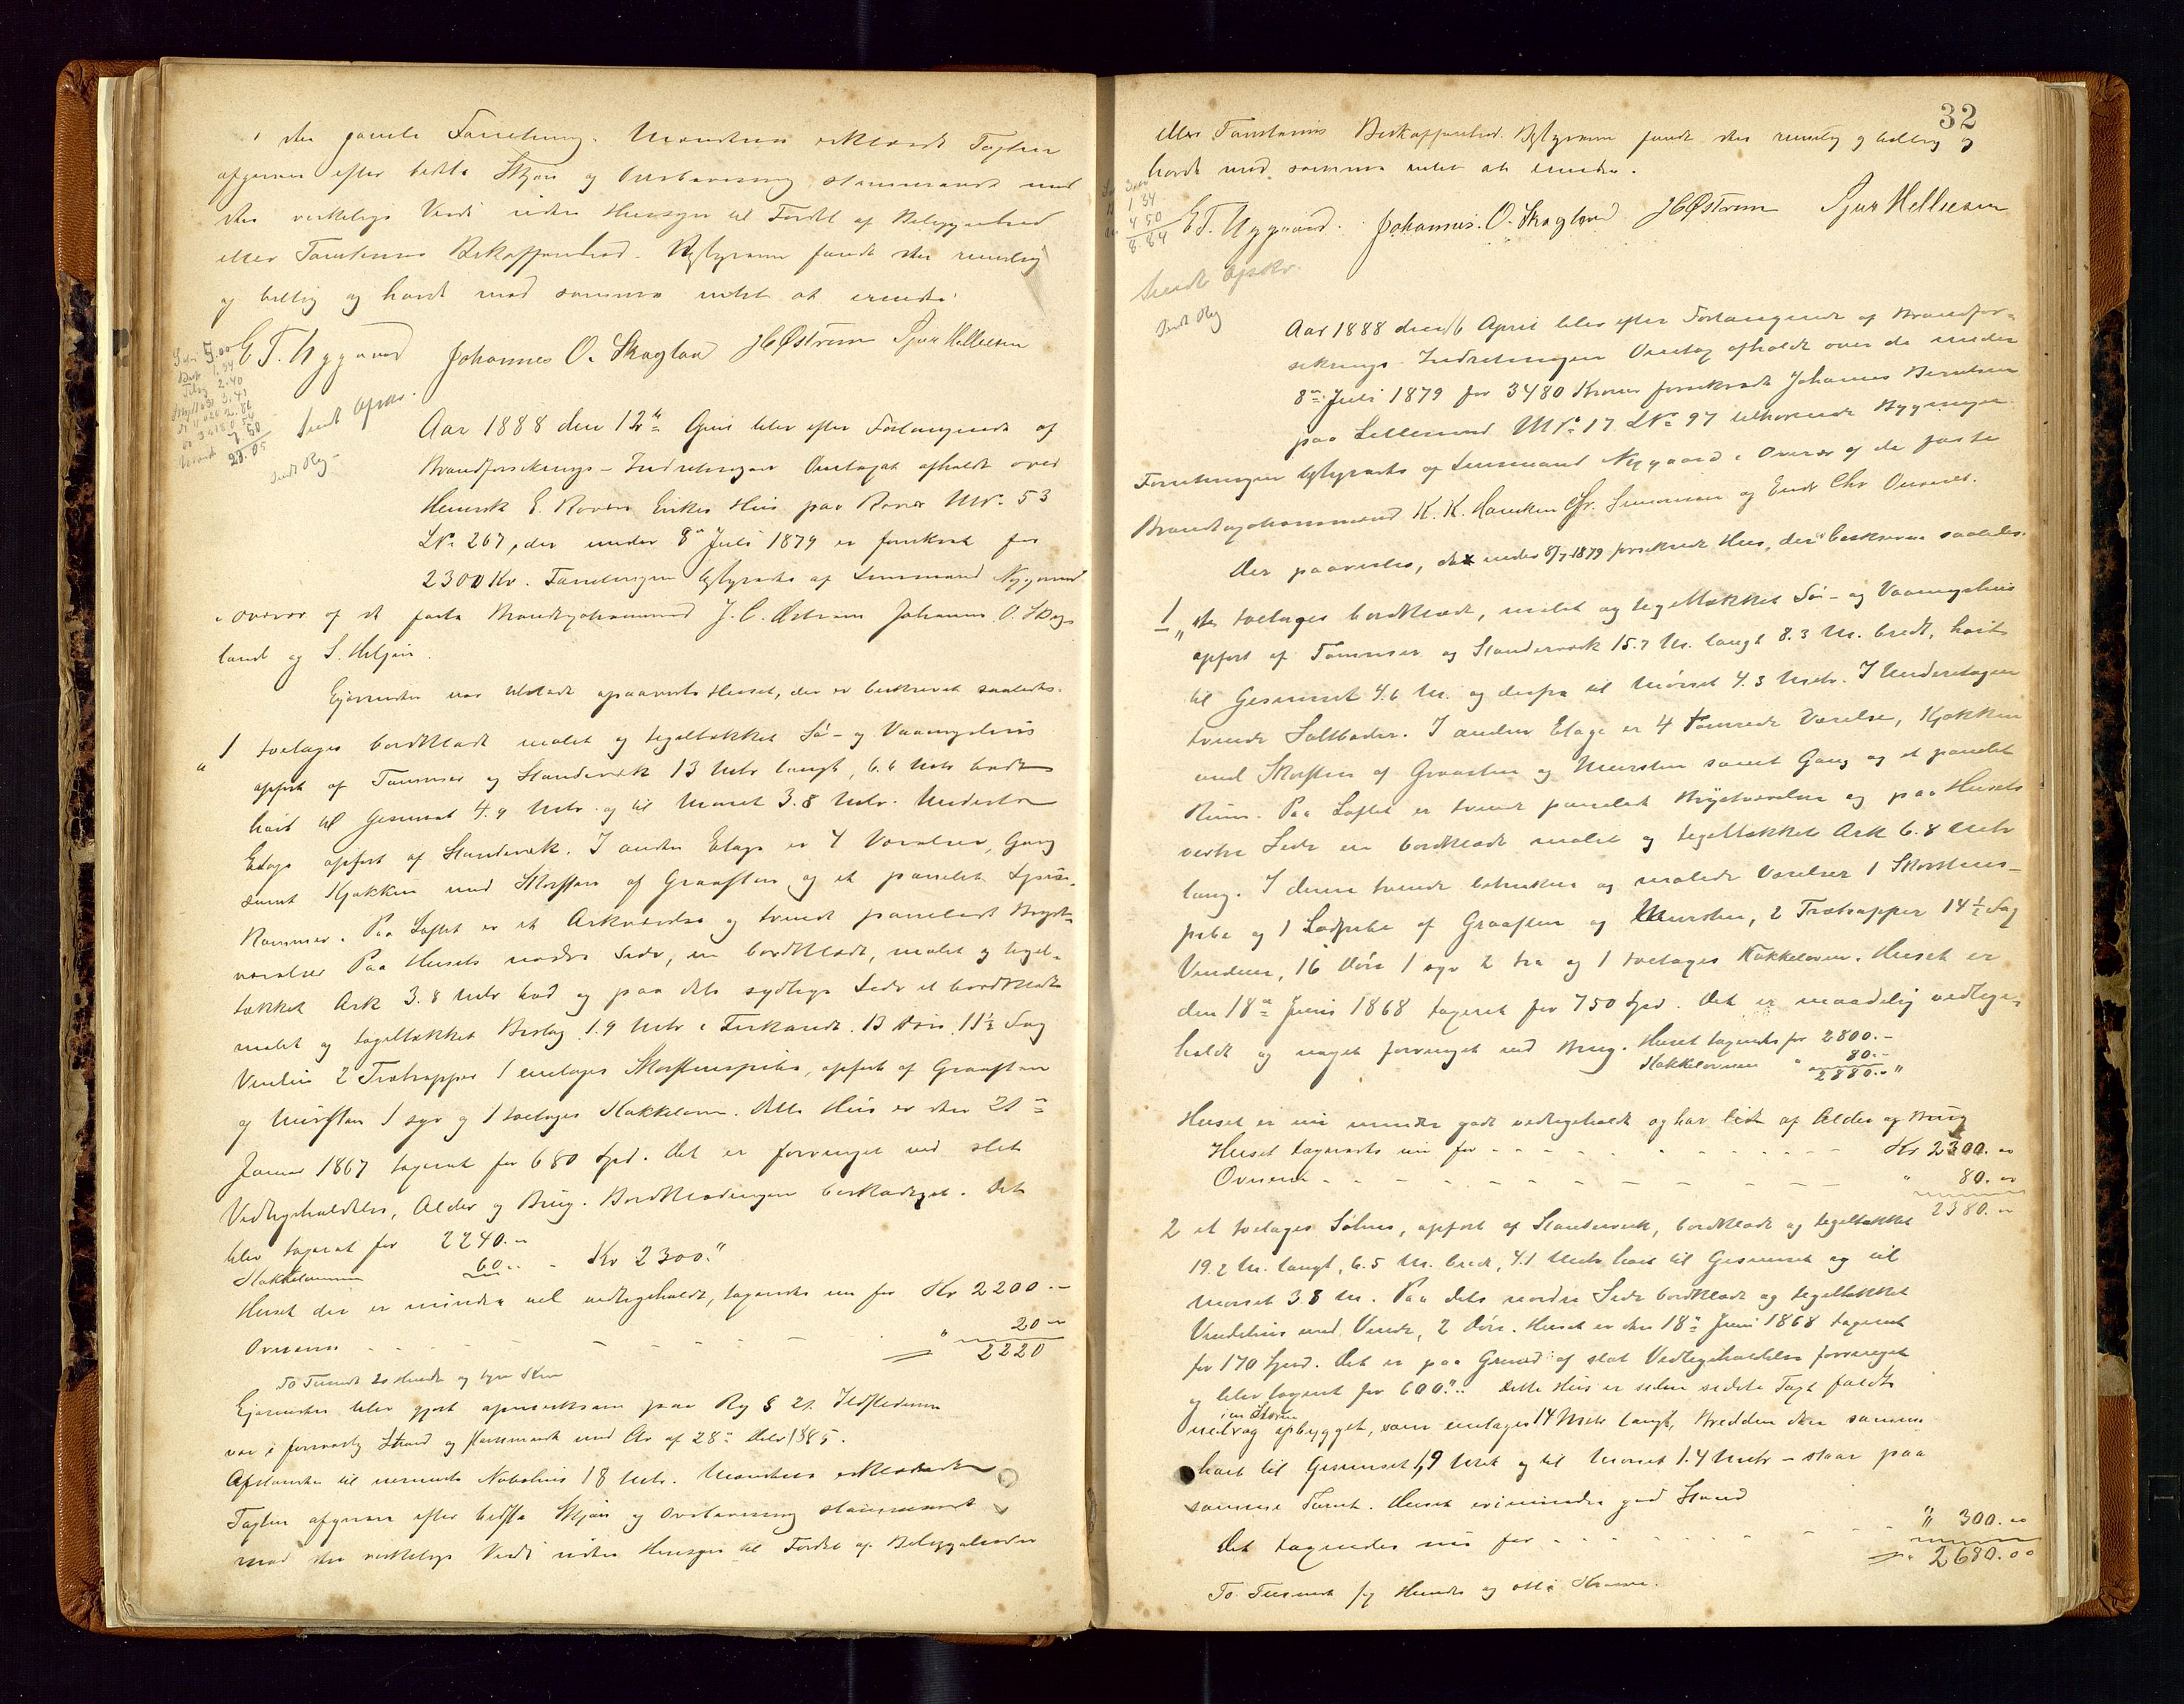 i den Forretning. Mændene erklærede Taxten
afgiven efter bedste Skjøn og Overbevisning stemmende med
den virkelige Værdi uden Hensyn til Fordel af Beliggenhed
eller Tomtens Beskaffenhed. Bestyreren fandt den rimelig
og billig og havde mod samme intet at erindre.
E. T. Nygaard Johannes O. Skogland J C Østrem Sjur Helliesen
5.00
1.34
2.40
23.05
Sendt Gjenp.
Sendt Reg
Aar 1888 den 12te April blev efter Forlangende af
Brandforsikrings-Indretningen Omtaxt afholdt over
Henrik E. Rovær Enkes Hus paa Rovær MNr. 53
LNr 267, der under 8de Juli 1879 er forsikret for
2300 Kr. Forretningen bestyredes af Lensmand Nygaard
i overvær af de faste Brandtaxtmænd J. C. Østrem Johannes O. Skog-
land og S. Heljesen.
Ejerinden var tilstede og paaviste Huset, der er beskrevet saaledes.
1 toetages bordklædt malet og tegltækket Sø- og Vaaningshus
opført af Tømmer og Standerværk 13 Mtr langt, 6.6 Mtr bredt
høit til Gesimset 4.9 Mtr. og til Mønet 3.8 Mtr. Underste
Etage opført af Standerværk. I anden Etage er 4 Værelser, Gang
samt Kjøkken med Skorsten af Graasten og et panelet Spise-
kammer. Paa Loftet er et Arkværelse og tvende panelede Bryst-
værelser Paa Husets nordre Side, en bordklædt, malet og tegl-
tækket Ark 3.8 Mtr bred og paa dets sydlige Side et bordklædt
malet og tegltækket Bislag 1.9 Mtr i Firkandt. 13 Døre 11½ Fag
Vinduer 2 Trætrapper 1 enetages Skorstenspibe, opført af Graasten
og Mursten 1 syv og 1 toetages Kakkelovn. Dette Hus er den 21de
Januar 1867 taxeret for 680 Spd. Det er forringet ved slet
Vedligeholdelse, Alder og Brug. Bordklædningen beskadiget. Det
blev taxeret for 2240.-
Kakkelovnene 60.. - Kr 2300."
Huset der er mindre vel vedligeholdt, taxeredes nu for Kr 2200.-
Ovnene - - - - - " 20-
2220
To Tusinde to Hundrede og tyve Kroner
Ejerinden blev gjort opmærksom paa Reg § 21. Ildstederne
var i forsvarlig Stand og med Lov af 28de Febr 1885.
Afstanden til nærmeste Nabohus 18 Mtr. Mændene erklærede
Taxten afgiven efter bedste Skjøn og Overbevisning stemmende
med den virkelige Værdi uden Hensyn til Fordel af Beliggenheden
32
eller Tomtens Beskaffenhed. Bestyreren fandt den rimelig og billig og
havde mod samme intet at erindre.
1 34
4 50
8.84
E. T. Nygaard. Johannes. O. Skogland J C Østrem Sjur Helliesen
Sendt Gjenp.
Sendt Reg
Aar 1888 den April blev efter Forlangende af Brandfor-
sikrings-Indretningen Omtaxt afholdt over de under
8de Juli 1879 for 3480 Kroner forsikrede Johannes Berntsen
paa Lillesund MNr. 17 LNr 97 tilhørende Bygninger.
Forretningen bestyredes af Lensmand Nygaard i Overvær af de faste
Brandtaxtmænd K. K. Simonsen og Endr. Chr
Der paavistes, det under 8/7 1879 forsikrede Hus, der er beskreven saaledes.
1 " Et toetages bordklædt, malet og tegltækket Sø- og Vaaningshus
opført af Tømmer og Standerværk 15.7 M. langt 8.3 M. bredt, høit
til Gesimset 4.6 M. og derfra til Mønet 4.3 Mtr. I Underetagen
tvende Saltboder. I anden Etage er 4 tømrede Værelser, Kjøkken
med Skorsten af Graasten og Mursten samt Gang og et panelet
Rum. Paa Loftet er tvende panelede Brystværelser og paa Husets
vestre Side en bordklædt malet og tegltækket Ark 6.8 Mtr
lang. I denne tvende betrukne og malede Værelser 1 Skorstens-
pibe og 1 Lodpibe af Graasten og Mursten, 2 Trætrapper 14½ Fag
Vinduer, 16 Døre 1 syv 2 tre og 1 toetages Kakkelovn. Huset er
den 18de Juni 1868 taxeret for 750 Spd. Det er maadelig vedlige-
holdt og noget forringet ved Brug. Huset taxeredes for 2800.-
Kakkelovnene " 80.-
2880.- "
Huset er nu mindre godt vedligeholdt og har lidt af Alder og Brug
Huset taxeredes nu for - - - - - Kr 2300.00
Ovnene - - - - - " 80.00
2380.00
2 et toetages Søhus, opført af Standerværk, bordklædt og tegltækket
19.2 M. langt, 6.5 M. bredt, 4.1 Mtr høit til Gesimset og til
Mønet 3.8 M. Paa dets nordre Side bordklædt og tegltækket
Vindehus med Vinde, 2 Døre. Huset er den 18de Juni 1868 taxeret
for 170 Spd. Det er paa Grund af slet Vedligeholdelse forringet
og blev taxeret for 600".. Dette Hus er siden sidste Taxt faldt
i en Storm
ned og opbygget, som enetages 14 Mtr langt, Bredden den samme
høit til Gesimset 1,9 Mtr og til Mønet 1.4 Mtr - staar paa
samme Tomt. Huset er i mindre god Stand
Det taxeredes nu for - - - - - " 300.00
2680.00
To Tusinde sex Hundrede og otti Kroner.